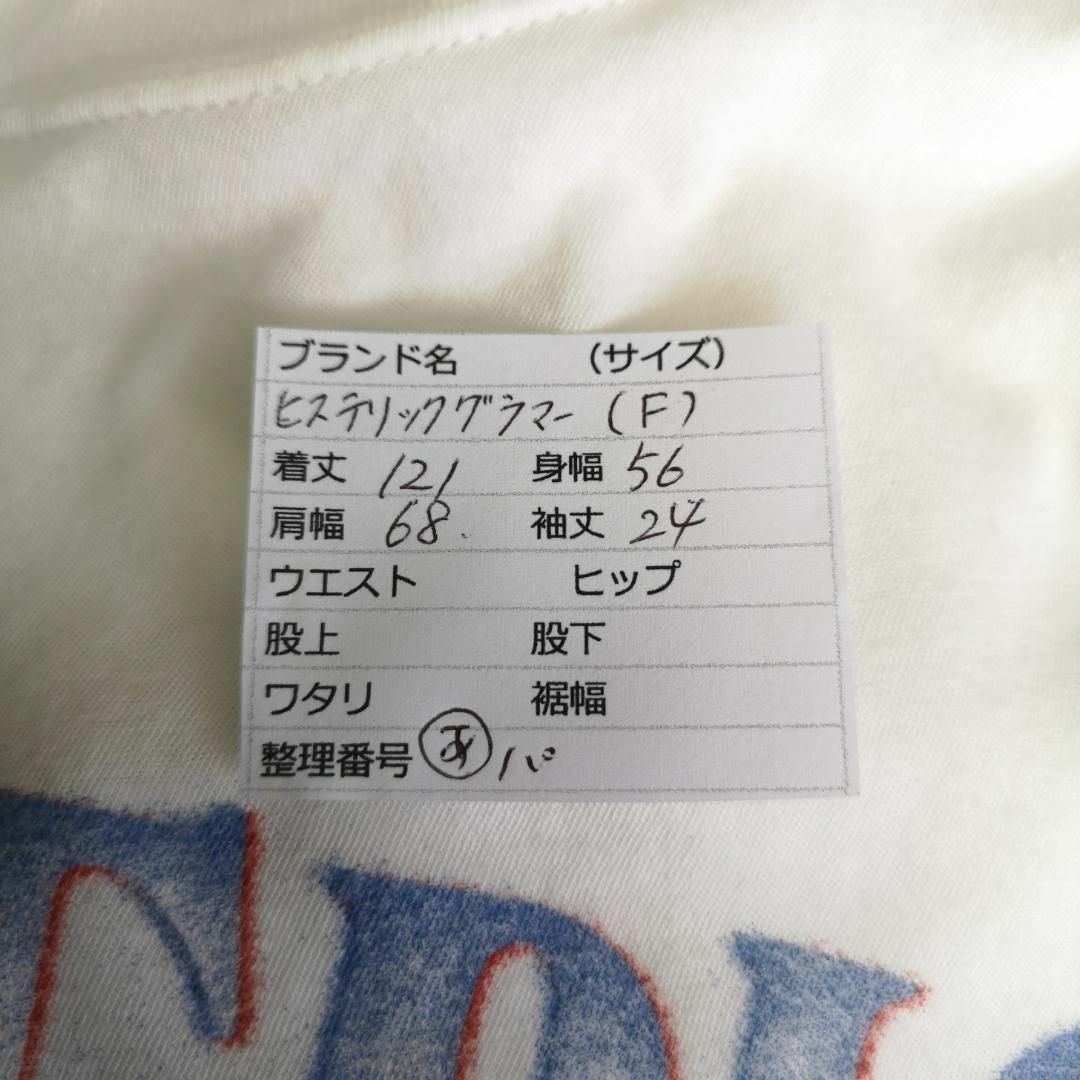 ブランド名 (サイズ)
ヒステリックグラマー (F)
着丈 121 身幅 56
肩幅 68. 袖丈 24
ウエスト ヒップ
股上 股下
ワタリ 裾幅
整理番号 あ パ